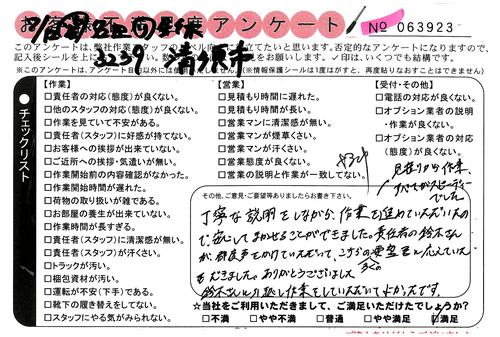 お客様不満足度アンケート
No 063923
このアンケートは、弊社作業スタッフのレベル向上に役立てたいと思います。否定的なアンケートになりますので、
記入後シールを上に
✓印は、いくつでも結構です。
※このアンケートは、アンケート目的以外には使用いたしません。(※情報保護シールは1度はがすと、再度貼りなおすことはできません)
チェックリスト
【作業】
□責任者の対応(態度)が良くない。
□他のスタッフの対応(態度)が良くない。
□作業を見ていて不安がある。
□責任者(スタッフ)に好感が持てない。
□お客様への挨拶が出来ていない。
□ご近所への挨拶・気遣いが無い。
□作業開始前の内容確認がなかった。
□作業開始時間が遅れた。
□荷物の取り扱いが雑である。
□お部屋の養生が出来ていない。
□作業時間が長すぎる。
□責任者(スタッフ)に清潔感が無い。
□責任者(スタッフ)が汗くさい。
□トラックが汚い。
□梱包資材が汚い。
□運転が不安(下手)である。
□靴下の履き替えをしてない。
□スタッフにやる気がみられない。
【営業】
□見積もり時間に遅れた。
□見積もり時間が長い。
□営業マンに清潔感が無い。
□営業マンが煙草くさい。
□営業マンが汗くさい。
□営業態度が良くない。
□営業の説明と作業が一致してない。
【受付・その他】
□電話の対応が良くない。
□オプション業者の説明
・作業が良くない。
□オプション業者の対応
(態度)が良くない。
見積りから作業、
すべてがスピーディー
でした
その他、ご意見・ご要望等ありましたらお書き下さい。
丁寧な説明をしながら、作業を進めていただいたの
で、安心してまかせることができました。責任者の鈴木さん
が、都度声をかけていただいて、こちらの要望も応えていた
だきました。ありがとうございました
鈴木さんに引越し作業をしていただいてよかったです。
☆当社をご利用いただきまして、ご満足いただけたでしょうか?
□不満 □やや不満 □普通 □やや満足 ☑満足